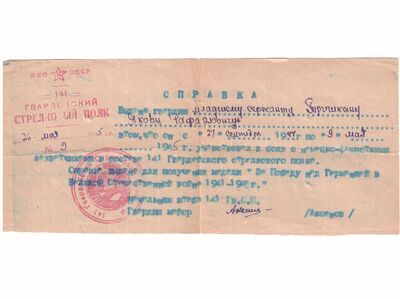 НКО СССР
— 141 —
ГВАРДЕЙСКИЙ
СТРЕЛКОВЫЙ ПОЛК
26 мая 5 г.
№ 9
СПРАВКА
Выдана гвардии младшему сержанту
Якову Рафаиловичу
в том, что он с 27 сентября 194 г по 9 мая
5 г. участвовал в боях с немецко-фашистскими
захватчиками в составе 141 Гвардейского стрелкового полка.
Справка выдана для получения медали "За Победу над Германией в
Великой Отечественной войне 1941-1945г."
Начальник штаба 141 Гв.С.П.
Гвардии майор /Аксенов/